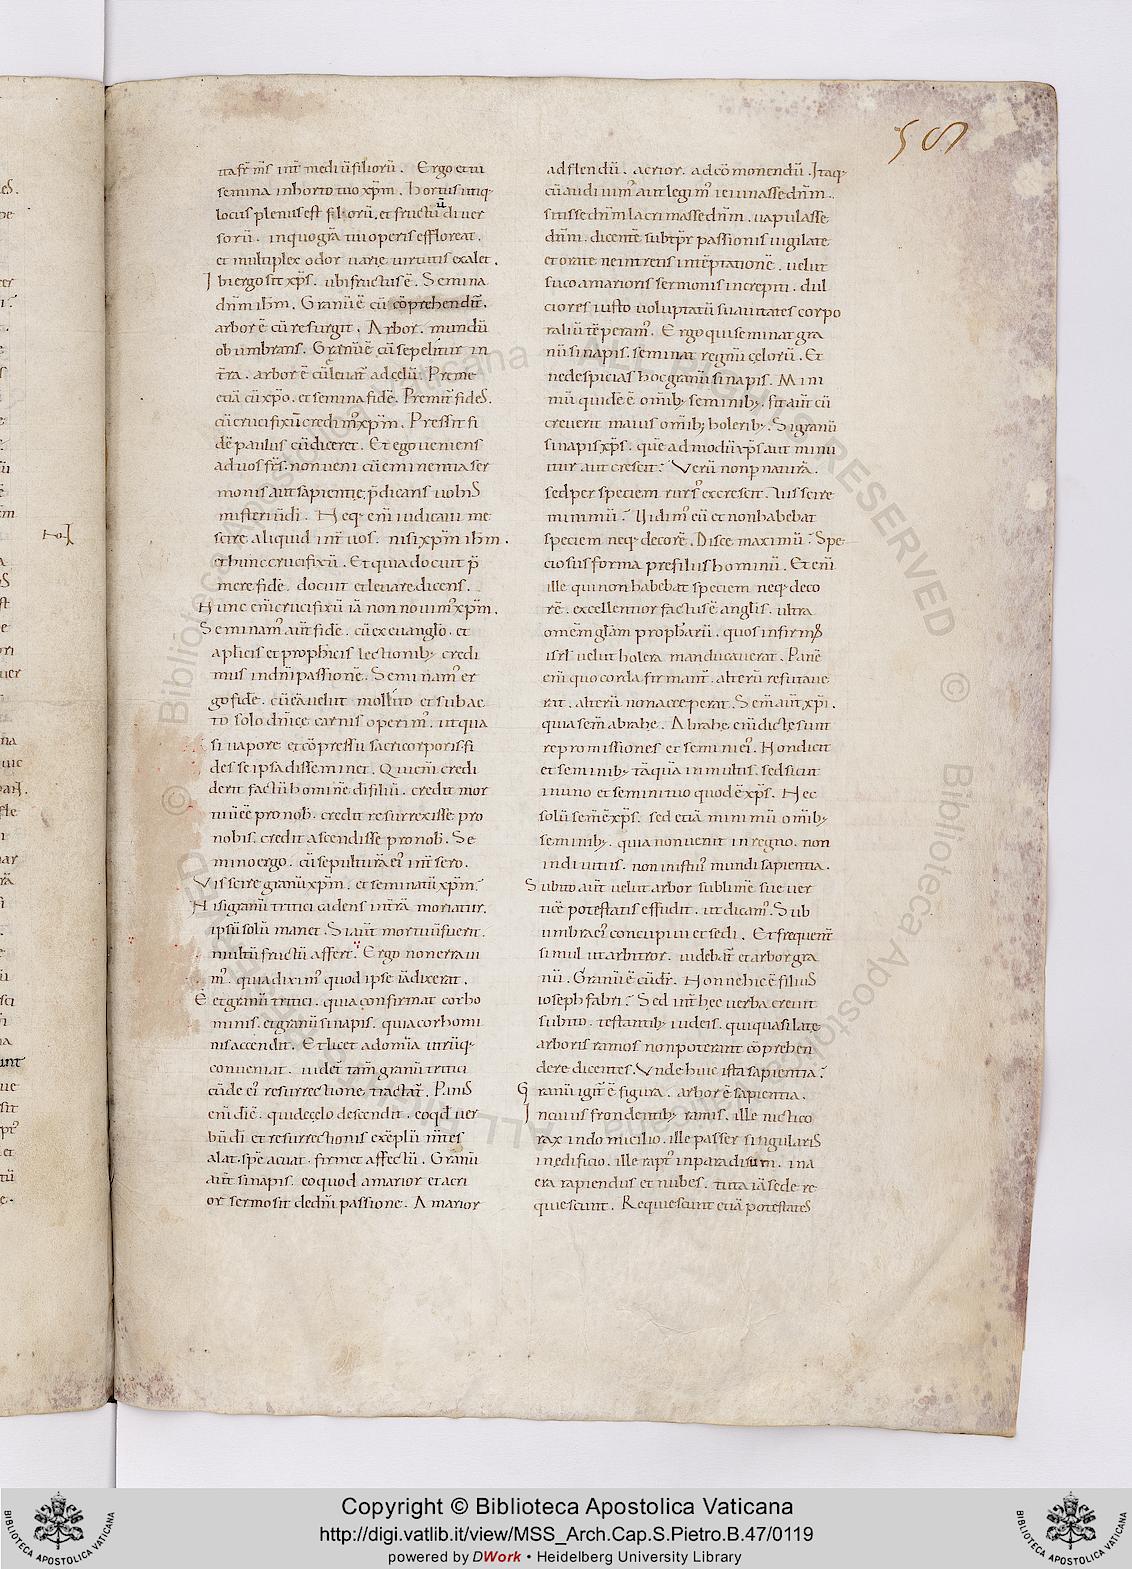 58
ita fr̄ m̄s int̄ mediū filiorū. Ergo et tu
semina in horto tuo xp̄m. Hortus itiq;
locus plenus est filiorū, et fructuū diuer
sorū. in quo gr̄a tui operis effloreat.
et multiplex odor uarie uirtutis exalet.
Ibi ergo sit xp̄s. ubi fructus ē. Semina
dn̄m ih̄m. Granū ē cū cōprehendit̄.
arbor ē cū resurgit. Arbor. mundū
obumbrans. Granū ē cū sepelitur in
t̄ra. arbor ē cū leuat̄ ad cęlū. Preme
etiā cū xp̄o. et semina fidē. Premit̄ fides.
cū crucifixū credim᾽ xp̄m. Pressit fi
dē paulus cū diceret. Et ego ueniens
ad uos fr̄s. non ueni cū eminentia ser
monis aut sapientię, p̄dicans uobis
misteriū dī. Neq; eni iudicaui me
scire aliquid int̄ uos. nisi xp̄m ih̄m.
et hunc crucifixū. Et quia docuit p̄
mere fidē. docuit et leuare dicens.
Nunc eni crucifixū iā non nouim᾽ xp̄m.
Seminam᾽ aut̄ fidē. cū ex euanglo. et
aplicis et propheicis lectionib; credi
mus in dn̄i passionē. Seminam᾽ er
go fidē. cū eā uelut mollito et subac
to solo dn̄ice carnis operim᾽. ut qua
si uapore et cōpressu sacri corporis. fi
des se ipsa disseminet. Qui eni credi
derit factū hominē di filiū. credit mor
tuū eē pro nob̄. credit resurrexisse pro
nobis. credit ascendisse pro nob̄. Se
mino ergo. cū sepulturā ei᾽ int̄sero.
Vis scire granū xp̄m. et seminatū xp̄m?
Nisi granū tritici cadens in t̄rā mortuatur.
ipsū solū manet. Si aut̄ mortuū fuerit.
multū fructū affert. Ergo non erraui
m᾽. quia dixim᾽ quod ipse iā dixerat.
Ē et granū tritici. quia confirmat cor ho
minis. et granū sinapis. quia cor homi
nis accendit. Et licet ad om̄ia utrūq;
conueniat. uidet̄ tam̄ granū tritici
cū de ei᾽ resurrectione tractat̄. Panis
eni di ē. qui de cęlo descendit. eo qd uer
bū di et resurrectionis exēplū m̄tes
alat. spē acuat. firmet affectū. Granū
aut̄ sinapis. eo quod amarior et acri
or sermo sit de dn̄i passione. Amarior
ad flendū. acrior. ad cōmonendū. Itaq;
cū audiuim᾽ aut legim᾽ ieiunasse dn̄m.
sitisse dn̄m lacrimasse dn̄m. uapulasse
dn̄m. dicentē sub tp̄r passionis uigilate
et orate ne intretis in tēptationē. uelut
suco amarioris sermonis increpiti. dul
ciores iusto uoluptatū suauitates corpo
raliū tēperam᾽. Ergo qui seminat gra
nū sinapis. seminat regnū cęlorū. Et
ne despicias hoc granū sinapis. Mini
mū quidē ē om̄ib; seminib;. sit aut̄ cū
creuerit maius om̄ib; holerib;. Si granū
sinapis xp̄s. quēadmodū xp̄s aut minu
itur aut crescit? Verū non p naturā.
sed per speciem rurs᾽ excrescit. Vis scire
minimū? Vidim᾽ eū et non habebat
speciem neq; decorē. Disce maximū? Spe
ciosus forma pre filius hominū. Et eni
ille qui non habebat speciem neq; deco
rē. excellentior factus ē anglis. ultra
omem gl̄am prophetarū. quos infirm᾽
isrl uelut holera manducauerat. Panē
eni quo corda firmant̄. alterū refutaue
rat. alterū non acceperat. Sem̄ aut̄ xp̄i.
quia sem̄ abrahę. Abrahę eni dictę sunt
repromissiones et semini ei᾽. Non dicit
et seminib; tāquā in multis. sed sicut
in uno et semini tuo quod ē xp̄s. Nec
solū sem̄ ē xp̄s. sed etiā minimū om̄ib;
seminib;. quia non uenit in regno. non
in diuitiis. non in istius mundi sapientia.
Subito aut̄ uelut arbor sublimē sue uer
ticē potestatis effudit. ut dicam᾽. Sub
umbra ei᾽ concupiui et sedi. Et frequent̄
simul ut arbitror. uidebat̄ et arbor gra
nū. Granū ē cū dr̄. Nonne hic ē filius
ioseph fabri? Sed int̄ hęc uerba creuit
subito. testantib; iudeis. qui quasi late
arboris ramos non poterant cōprehen
dere dicentes. Vnde huic ista sapientia?
Granū igit̄ ē figura. arbor ē sapientia.
In cuius frondentib; ramis. ille nictico
rax in domicilio. ille passer singularis
in edificio. ille rapt᾽ in paradisum. in a
era rapiendus et nubes. tuta iā sede re
quiescunt. Requiescunt etiā potestates
Copyright © Biblioteca Apostolica Vaticana
http://digi.vatlib.it/view/MSS_Arch.Cap.S.Pietro.B.47/0119
powered by DWork • Heidelberg University Library